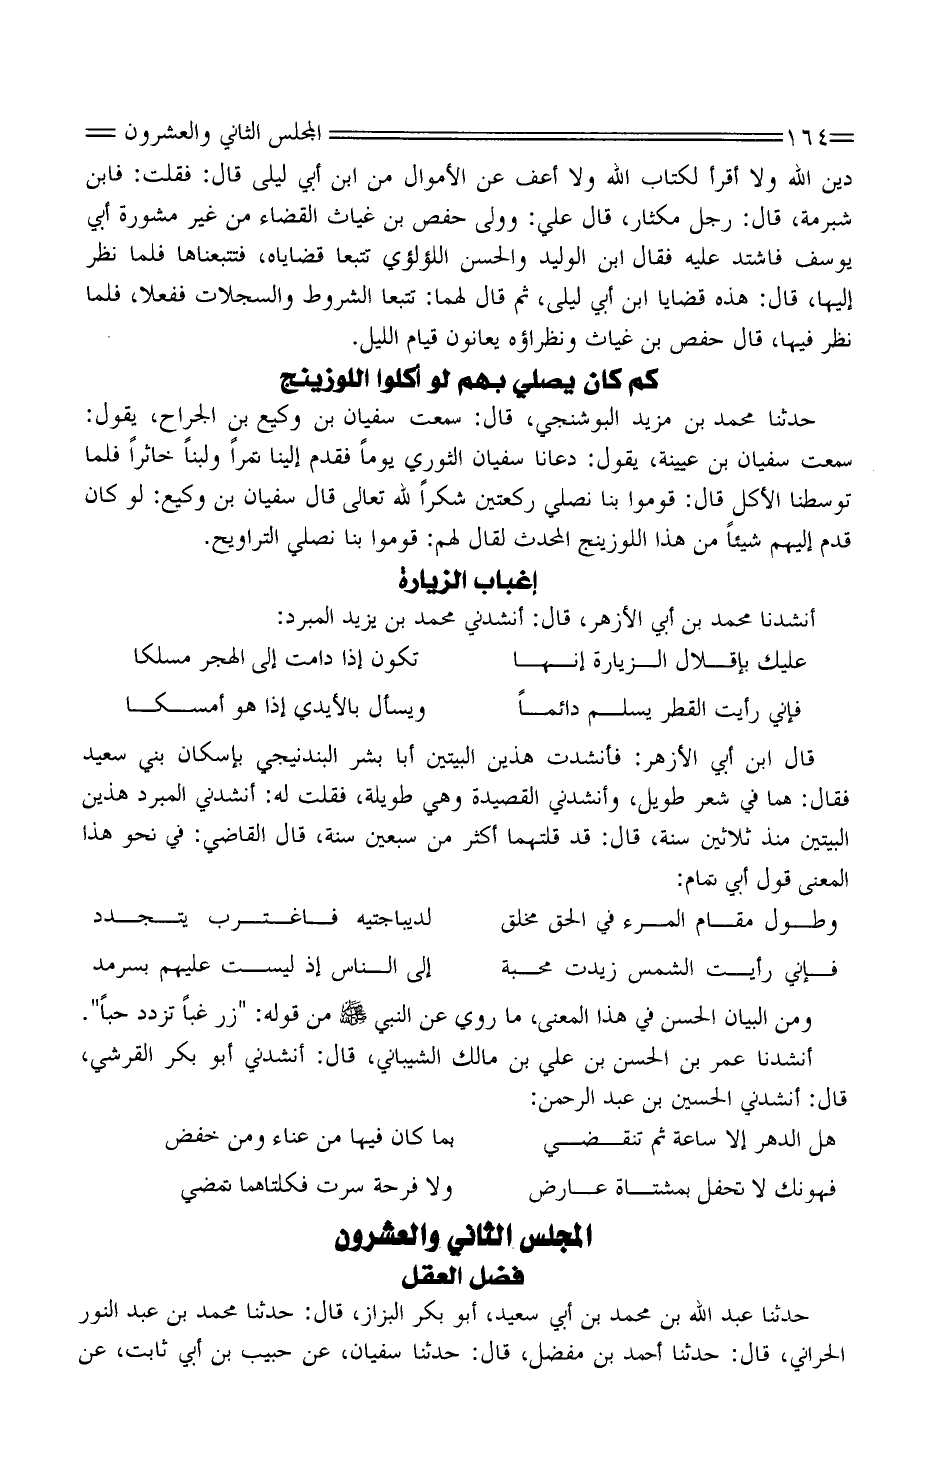 ١٦٤ المجلس الثاني والعشرون
دين الله ولا أقرأ لكتاب الله ولا أعف عن الأموال من ابن أبي ليلى قال: فقلت: فابن
شبرمة، قال: رجل مكثار، قال علي: وولى حفص بن غياث القضاء من غير مشورة أبي
يوسف فاشتد عليه فقال ابن الوليد والحسن اللؤلؤي تتبعا قضاياه، فتتبعناها فلما نظر
إليها، قال: هذه قضايا ابن أبي ليلى، ثم قال لهما: تتبعا الشروط والسجلات ففعلا، فلما
نظر فيها، قال حفص بن غياث ونظراؤه يعانون قيام الليل.
كم كان يصلي بهم لو أكلوا اللوزينج
حدثنا محمد بن مزيد البوشنجي، قال: سمعت سفيان بن وكيع بن الجراح، يقول:
سمعت سفيان بن عيينة، يقول: دعانا سفيان الثوري يوماً فقدم إلينا تمراً ولبناً خاثراً فلما
توسطنا الأكل قال: قوموا بنا نصلي ركعتين شكراً لله تعالى قال سفيان بن وكيع: لو كان
قدم إليهم شيئاً من هذا اللوزينج المحدث لقال لهم: قوموا بنا نصلي التراويح.
إغباب الزيارة
أنشدنا محمد بن أبي الأزهر، قال: أنشدني محمد بن يزيد المبرد:
عليك بإقلال الزيارة إنها تكون إذا دامت إلى الهجر مسلكا
فإني رأيت القطر يسلم دائماً ويسأل بالأيدي إذا هو أمسكا
قال ابن أبي الأزهر: فأنشدت هذين البيتين أبا بشر البندنيجي بإسكان بني سعيد
فقال: هما في شعر طويل، وأنشدني القصيدة وهي طويلة، فقلت له: أنشدني المبرد هذين
البيتين منذ ثلاثين سنة، قال: قد قلتهما أكثر من سبعين سنة، قال القاضي: في نحو هذا
المعنى قول أبي تمام:
وطول مقام المرء في الحق مخلق لديباجتيه فاغترب يتجدد
فإني رأيت الشمس زيدت محبة إلى الناس إذ ليست عليهم بسرمد
ومن البيان الحسن في هذا المعنى، ما روي عن النبي ﷺ من قوله: "زر غباً تزدد حباً".
أنشدنا عمر بن الحسن بن علي بن مالك الشيباني، قال: أنشدني أبو بكر القرشي،
قال: أنشدني الحسين بن عبد الرحمن:
هل الدهر إلا ساعة ثم تنقضي بما كان فيها من عناء ومن خفض
فهونك لا تحفل بمشتاة عارض ولا فرحة سرت فكلتاهما تمضي
المجلس الثاني والعشرون
فضل العقل
حدثنا عبد الله بن محمد بن أبي سعيد، أبو بكر البزاز، قال: حدثنا محمد بن عبد النور
الحراني، قال: حدثنا أحمد بن مفضل، قال: حدثنا سفيان، عن حبيب بن أبي ثابت، عن